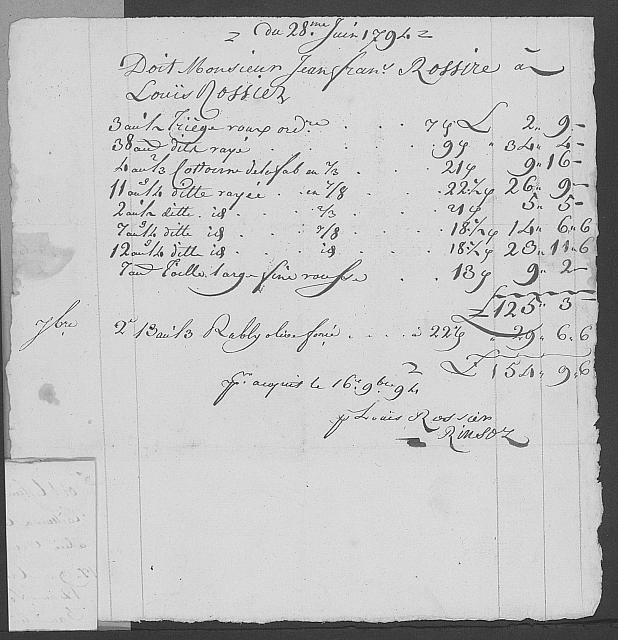 du 28.me Juin 1794
Doit Monsieur Jean fran.s Rossire à
Louis Rossier
3 au 1/2 Triège roux ord.re . . . 7 ß £ 2 " 9 -
38 au ditte rayé . . . . 9 ß " 34 " 4 -
4 au 2/3 Cottonne de la fab en 2/3 . . 21 ß 9 " 16 -
11 au 3/4 ditte rayée en 7/8 . . 22 1/2 ß 26 " 9 -
2 au 1/2 ditte id 2/3 . . . 21 ß 5 " 5 -
7 au 3/4 ditte id 7/8 . . . 18 1/2 ß 14 " 6 " 6
12 au 3/4 ditte id id . . . 18 1/2 ß 23 " 11 " 6
7 au Toille large fine rousse . . 13 ß 9 " 2 -
£ 125 " 3 -
7bre 2 " 13 au 1/3 olive foncé . . . à 22 ß " 29 " 6 " 6
£ 154 " 9 " 6
p.r acquit le 16.e 9bre 94
p Louis Rossier
Rinsoz